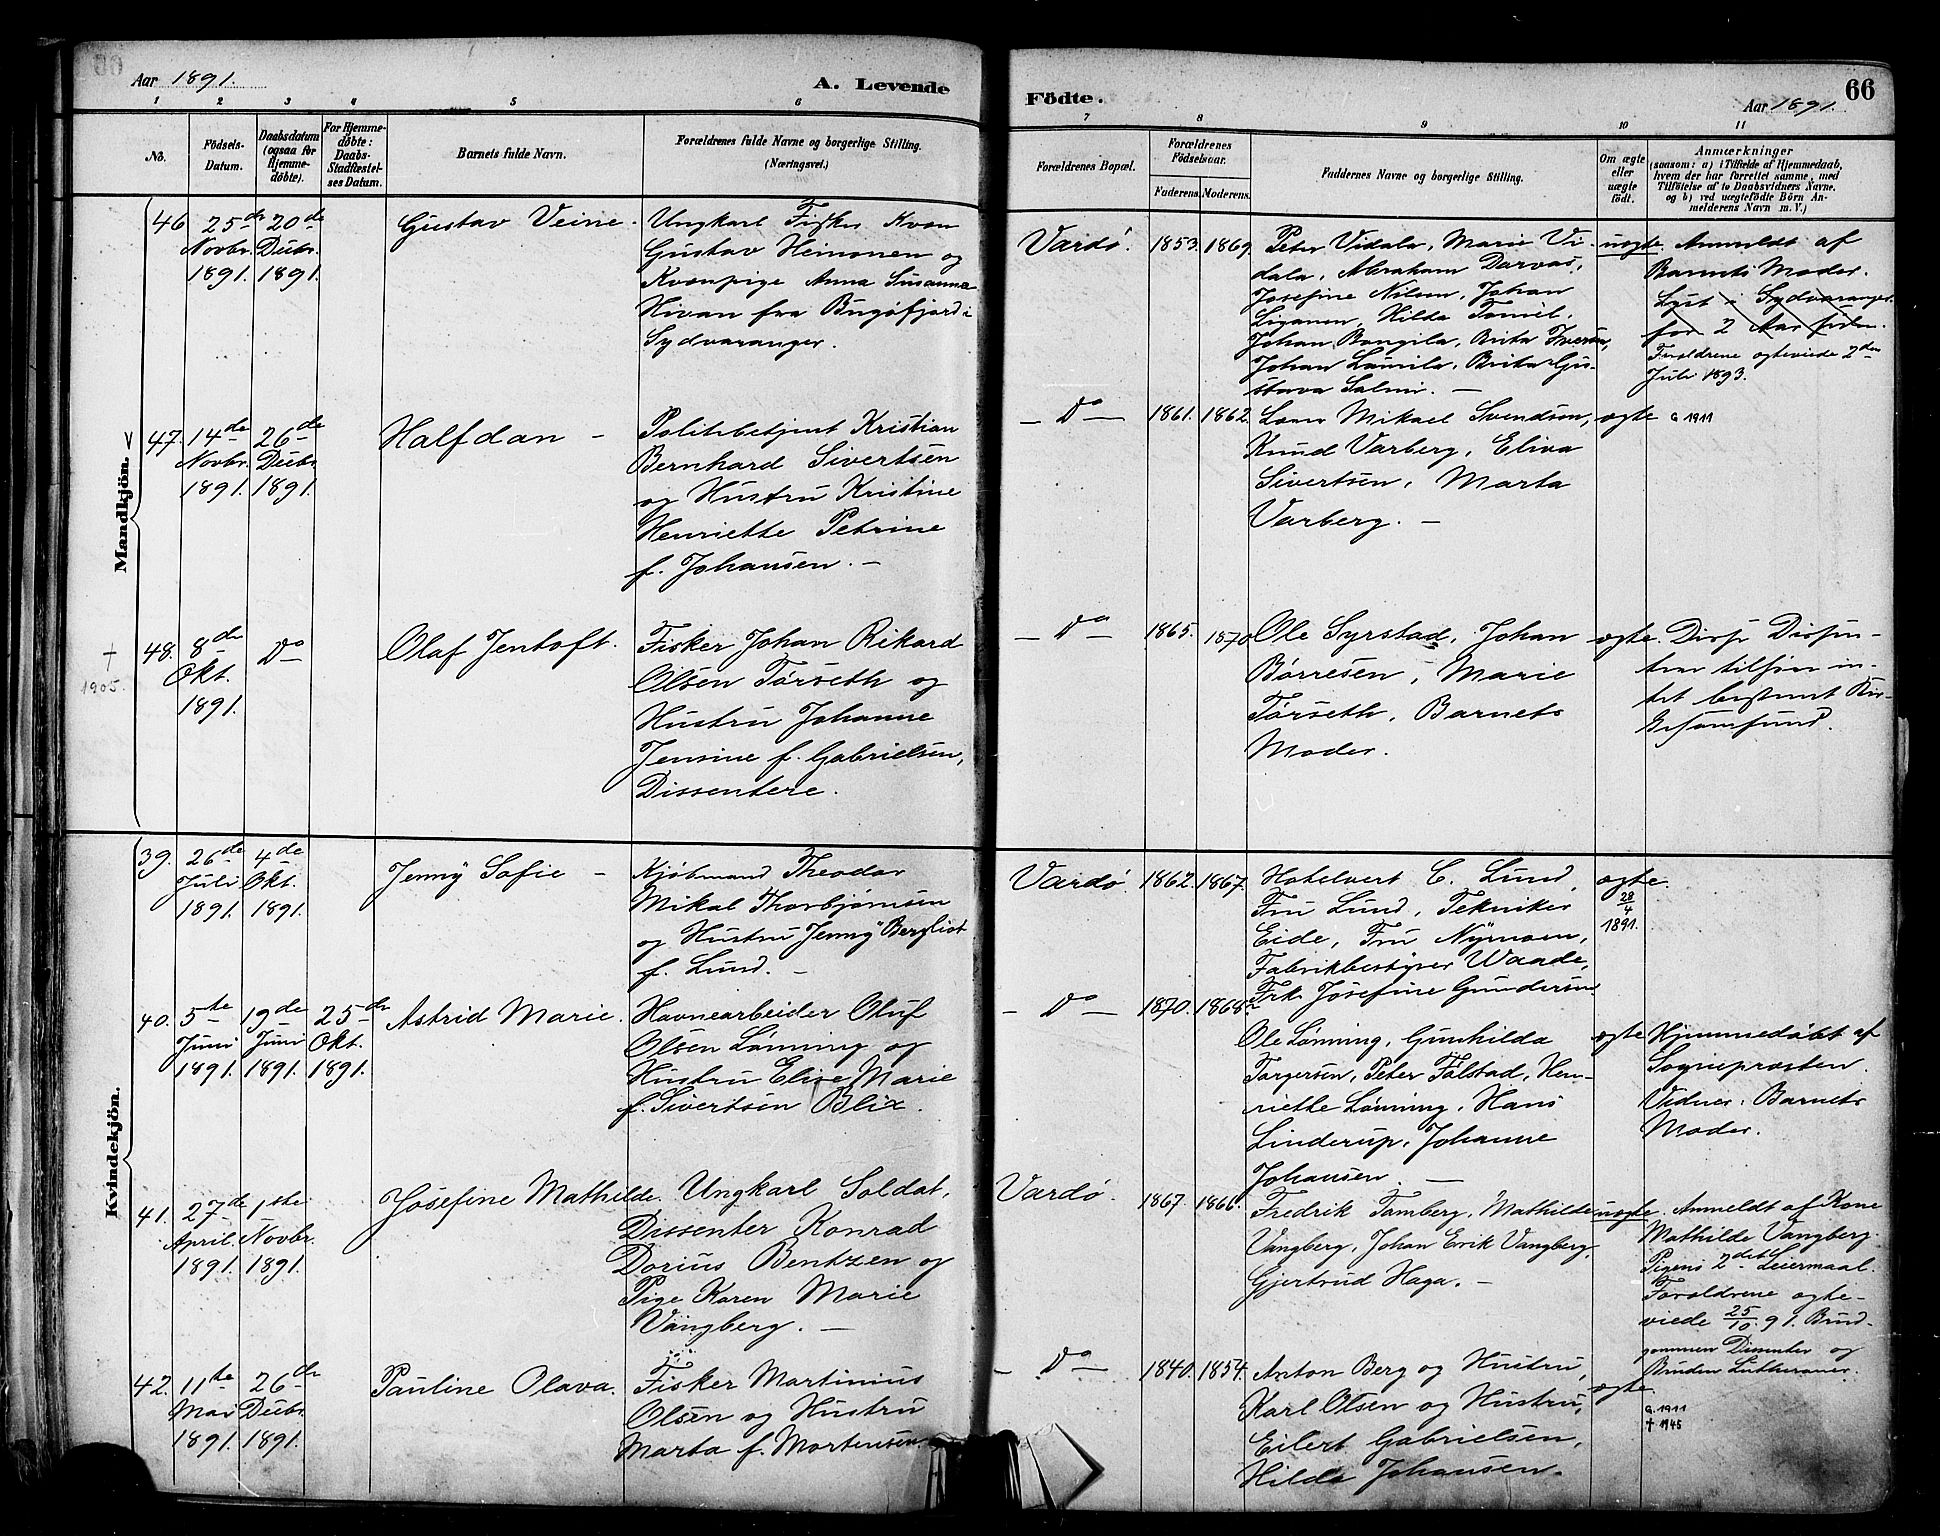 Aar 1891.
A. Levende
Födte.
Aar 1891.
66
1 2 3 4 5 6
7 8 9 10 11
No.
Födsels-
Datum.
Daabsdatum
(ogsaa for
Hjemme-
döbte).
For Hjemme-
döbte:
Daabs-
Stadfæstel-
ses Datum.
Barnets fulde Navn.
Forældrenes fulde Navne og borgerlige Stilling.
(Næringsvei.)
Forældrenes Bopæl.
Forældrenes
Födselsaar.
Faderens.
Moderens.
Faddernes Navne og borgerlige Stilling.
Om ægte
eller
uægte
født.
Anmærkninger
(saasom: a) i Tilfælde af Hjemmedaab,
hvem der har forrettet samme, med
Tilföielse af to Daabsvidners Navne.
og b) ved uægtefödte Börn An-
melderens Navn m. V.)
Mandkjön.
46
25de
Novbr.
1891.
20de
Decbr.
1891.
Gustav Veine.
Ungkarl Fisker Kvæn
Gustav Heimonen og
Kvænpige Anna Susanna
Hivan fra Bugöfjord i
Sydvaranger.
Vardö.
1853.
1869.
Peter Vidala, Marie Vi-
dala, Abraham Darvas,
Josefine Nilsen, Johan
Liganen, Hilda Tomil.
Johan Bongila, Brita Iversen,
Johan Lamila, Brita Gu-
stava Salmi. —
uægte.
Anmeldt af
Barnets Moder.
Lyst i Sydvaranger
for 2 Aar siden.
Forældrene ægteviede 2den
Juli 1893.
47.
14de
Novbr.
1891.
26de
Decbr.
1891.
Halfdan —
Politibetjent Kristian
Bernhard Sivertsen
og Hustru Kristine
Henriette Petrine
f. Johansen. —
— Do —
1861.
1862.
Lars Mikael Svendsen,
Knud Varberg, Eliva
Sivertsen, Marta
Varberg. —
ægte
G 1911
†
1905.
48.
8de
Okt.
1891.
Do
Olaf Jentoft.
Fisker Johan Rikard
Olsen Törseth og
Hustru Johanne
Jensine f. Gabrielsen,
Dissentere.
— Do —
1865.
1870
Ole Syrstad, Johan
Börresen, Marie
Törseth, Barnets
Moder.
ægte.
Disp
tilhörer in-
tet bestemt Kir-
kesamfund.
Kvindekjön.
39.
26de
Juli
1891.
4de
Okt.
1891.
Jenny Sofie —
Kjöbmand Theodor
Mikal Thorbjörnsen
og Hustru Jenny Bergliot
f. Lund. —
Vardö.
1862.
1867.
Hotelvert C. Lund,
Fru Lund, Tekniker
Eide, Fru Nyrnoen,
Fabrikbestyrer Waade,
Frk. Josefine Gundersen
ægte.
28/4
1891.
40.
5te
Juni
1891.
19de
Juni
1891.
25de
Okt.
1891.
Astrid Marie.
Havnearbeider Oluf
Olsen Lönning og
Hustru Elise Marie
f. Sivertsen Blix.
— Do —
1870.
1868.
Ole Lönning, Gunhilda
Torgersen, Peter Falstad, Hen-
riette Lönning, Hans
Linderup, Johanne
Johansen. —
ægte
Hjemmedöbt af
Sognepræsten.
Vidner: Barnets
Moder.
41.
27de
April.
1891.
1ste
Novbr.
1891.
Josefine Mathilde.
Ungkarl Soldat,
Dissenter Konrad
Dorius Bentzen og
Pige Karen Marie
Vangberg. —
Vardö.
1867.
1866.
Fredrik Tamberg, Mathilde
Vangberg, Johan Erik Vangberg,
Gjertrud Haga. —
uægte.
Anmeldt af Kone
Mathilde Vangberg.
Pigens 2det Leiermaal.
Forældrene ægte-
viede 25/10 91. Brud-
gommen Dissenter og
Bruden Lutheraner.
42.
11te
Mai
1891.
26de
Decbr.
1891.
Pauline Olava.
Fisker Martinius
Olsen og Hustru
Marta f. Mortensen.
— Do —
1840.
1854.
Anton Berg og Hustru,
Karl Olsen og Hustru,
Eilert Gabrielsen,
Hilda Johansen.
ægte
G. 1911
† 1945